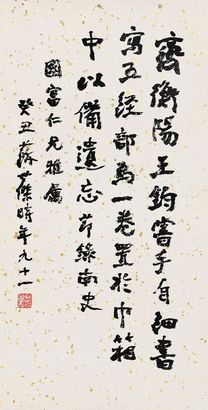 齊衡陽王鈞嘗手自細書
寫五經部為一卷置於巾箱
中以備遺忘節錄南史
國富仁兄雅屬
癸丑時年九十一